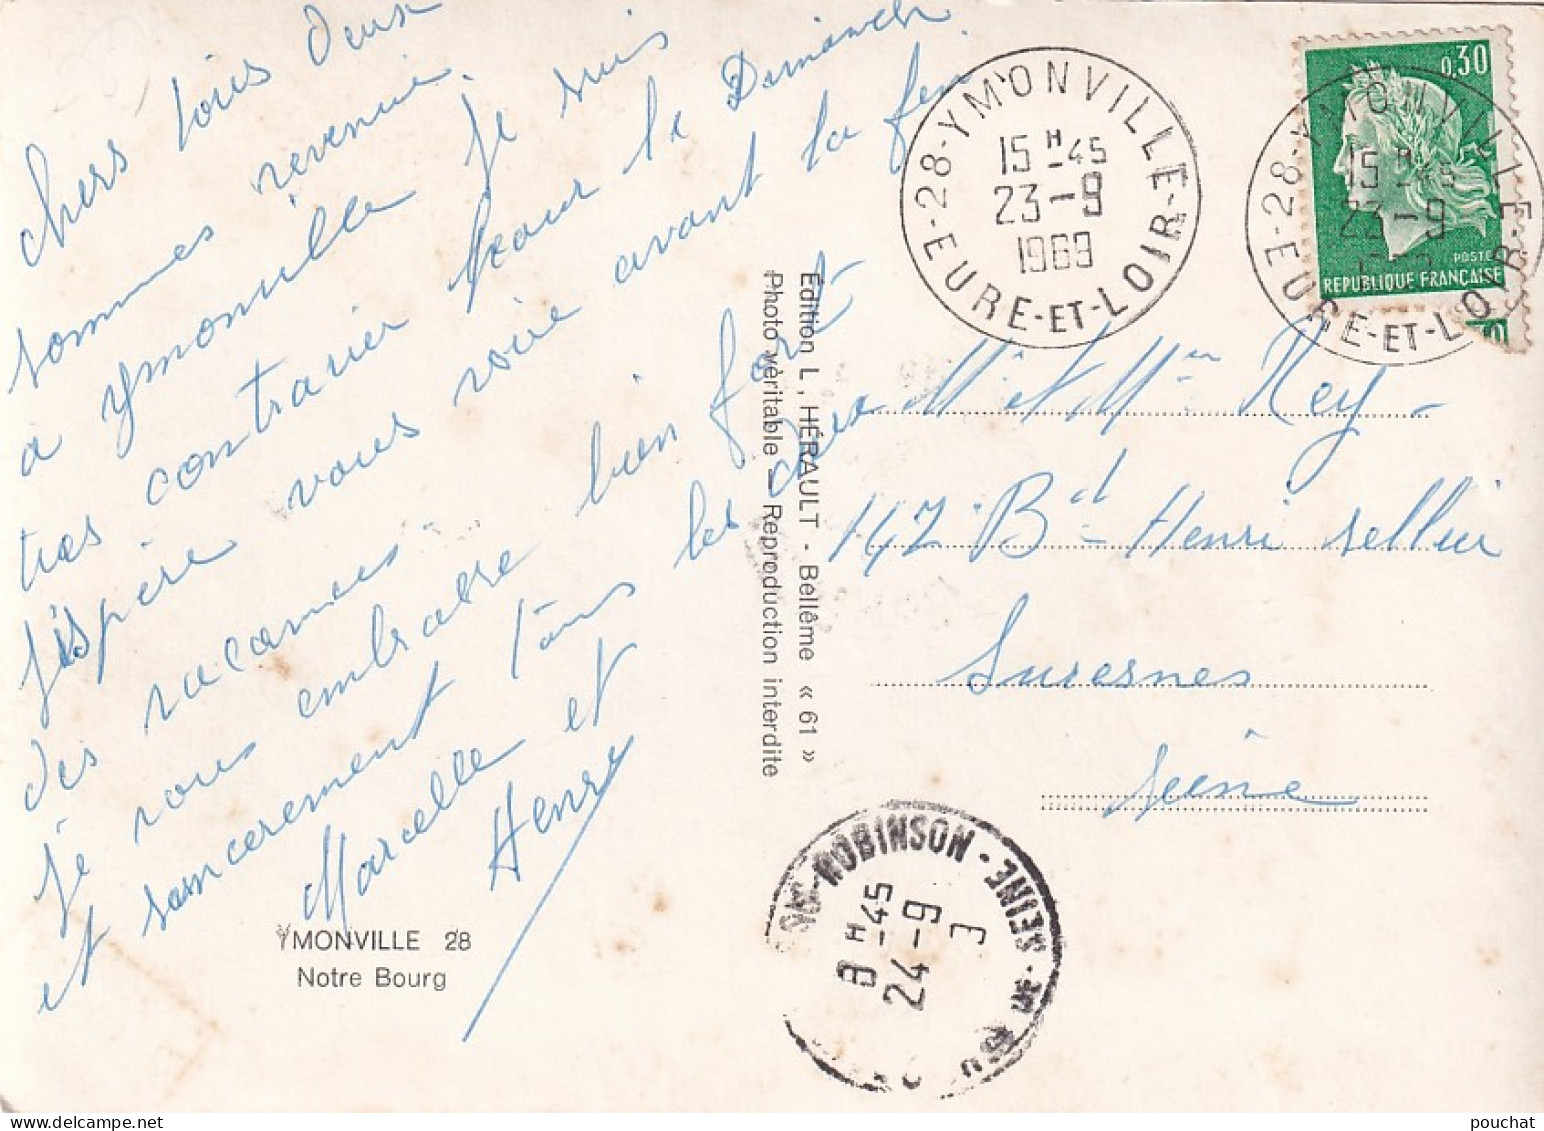 chers tous deux
sommes revenie.
a Ymonville je suis
tres contrarier pour le Dimanch
j'espère vous voire avant la fin
des vacances
je vous embrasse bien fort
et sancerement tous les deux
Marcelle et
Henri
YMONVILLE 28
Notre Bourg
Édition L. HÉRAULT - Bellême « 61 »
Photo véritable - Reproduction interdite
28-YMONVILLE-EURE-ET-LOIR
15 H-45
23-9
1969
0,30
POSTES
REPUBLIQUE FRANÇAISE
28-YMONVILLE-EURE-ET-LOIR
15 H-45
23-9
Mr et Mme Rey
142 Bd Henri sellier
Suresnes
Seine
ROBINSON - SEINE
8 H-45
24-9
pouchat